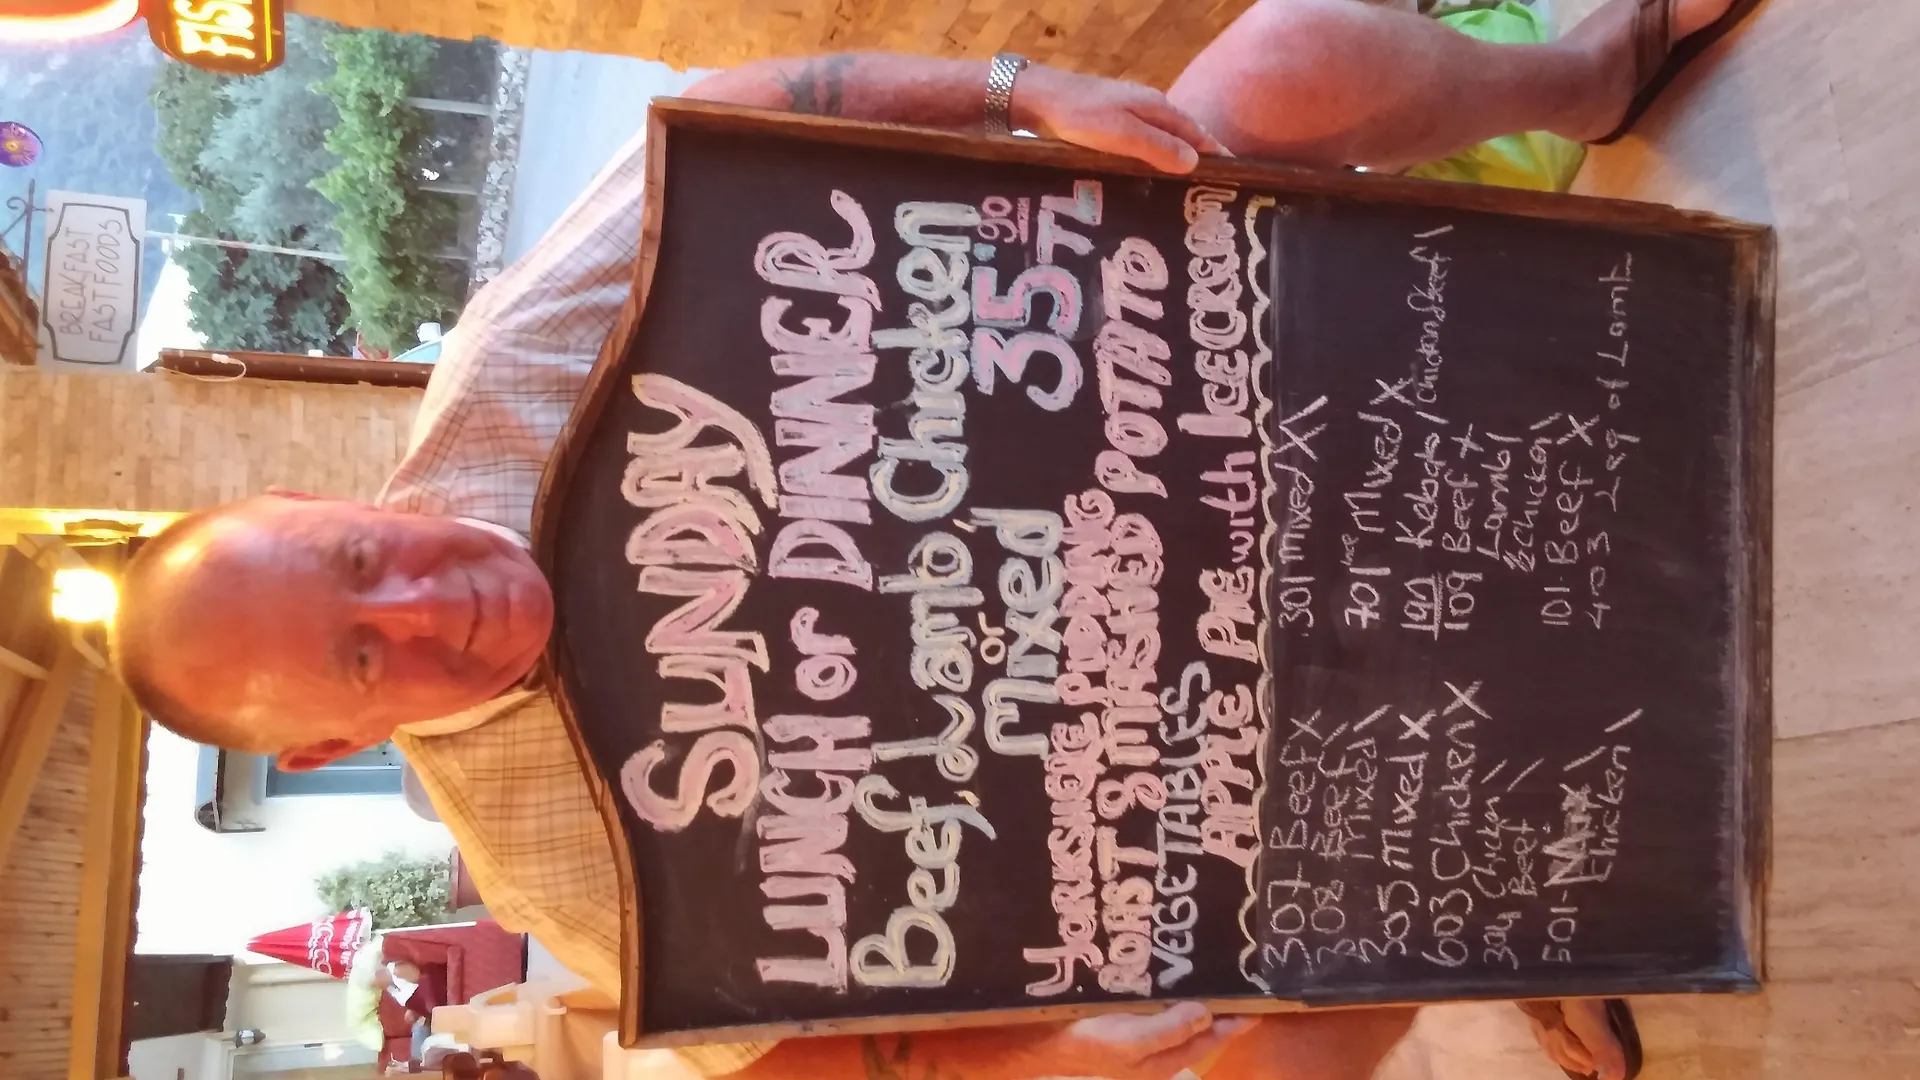 FISH
BREAKFAST
FAST FOODS
SUNDAY
LUNCH or DINNER
Beef, Lamb, Chicken
or
Mixed
35.90
TL
YORKSHIRE PUDDING
ROAST & MASHED POTATO
VEGETABLES
APPLE PIE with ICECREAM
307+ BeefX
308 Beef\
Mixed\
305 Mixed X
603 Chicken X
304 Chicken\
Beef \
501-
Chicken\
301 Mixed X\
701 Mixed X
190 Kebab/
109 Beef X
Lamb\
& Chicken\
101-Beef X
403 Leg of